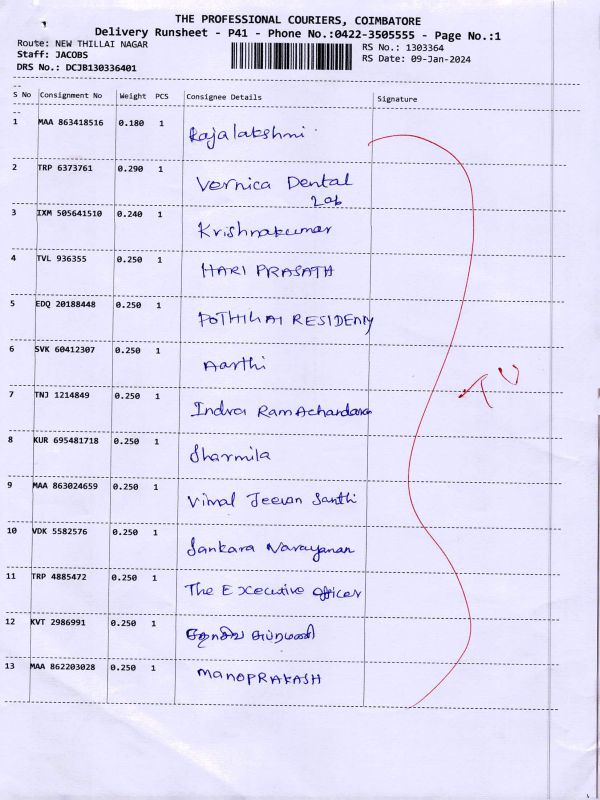 THE PROFESSIONAL COURIERS, COIMBATORE
Delivery Runsheet - P41 - Phone No.:0422-3505555 - Page No.:1
Route: NEW THILLAI NAGAR RS No.: 1303364
Staff: JACOBS RS Date: 09-Jan-2024
DRS No.: DCJB130336401
S No Consignment No Weight PCS Consignee Details Signature
1 MAA 863418516 0.180 1 Rajalakshmi
2 TRP 6373761 0.290 1 Vernica Dental
Lab
3 IXM 505641510 0.240 1 Krishnakumar
4 TVL 936355 0.250 1 HARI PRASATH
5 EDQ 20188448 0.250 1 POTHIHAI RESIDENY
6 SVK 60412307 0.250 1 Aarthi
7 TNJ 1214849 0.250 1 Indra
8 KUR 695481718 0.250 1 Sharmila
9 MAA 863024659 0.250 1 Vimal Jeevan Santhi
10 VDK 5582576 0.250 1 Sankara Narayanan
11 TRP 4885472 0.250 1 The Executive officer
12 KVT 2986991 0.250 1
13 MAA 862203028 0.250 1 MANOPRAKASH